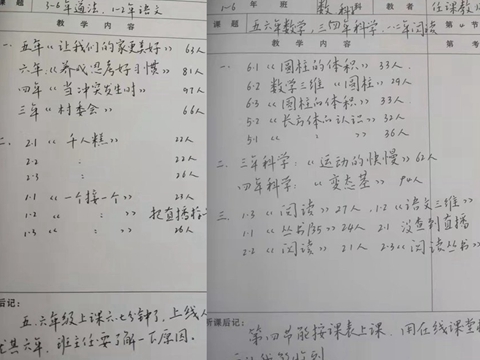 3-6年道法, 1-2年语文
课题
教学内容
一 五年《让我们的家更美好》 63人
六年《养成思考好习惯》 81人
四年《当冲突发生时》 97人
三年《村委会》 66人
二. 2.1 《千人糕》 22人
2.2 〃 22人
2.3 〃 26人
1.1 《一个接一个》 23人
1.2 《 〃 》
1.3 《 〃 》 26人
后记:
五.六年级上课六.七分钟了, 上线人
六年. 班主任要了解一下原因。
1-6 年 班 数科 教者 任课教
课题 五六年数学, 三四年科学. 一二年阅读 第 节
教学内容 第 考
一. 6.1 《圆柱的体积》 33人.
6.2 数学三维《圆柱》 29人
6.3 《圆柱的体积》 33人
5.2 《长方体的认识》 32人
5.1 《 〃 》 36人
二. 三年科学:《运动的快慢》 62人
四年科学: 《变态茎》 94人
三. 1.3 《阅读》 27人, 1.2 《语文三维》
1.1 《丛书135》 24人 2.1 没查到直播
2.2 《阅读》 21人 2.3 《阅读丛书》
课后记:
第四节能按课表上课, 用在线课堂